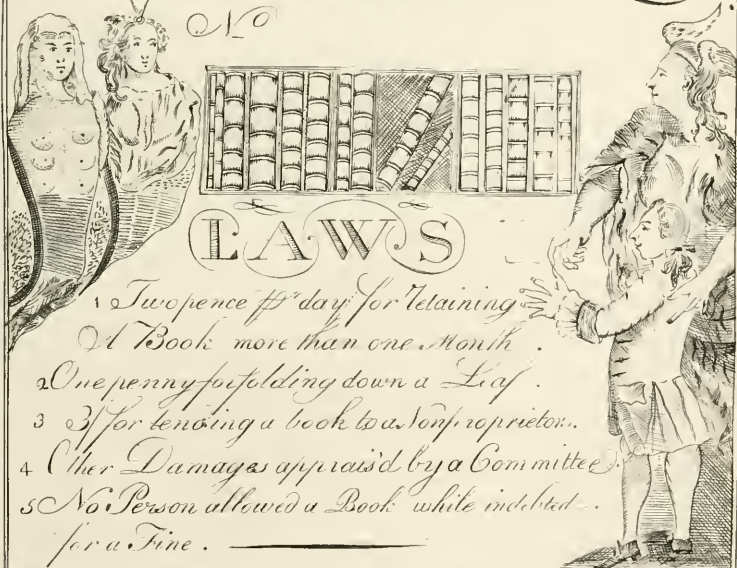 No
LAWS
1 Twopence pr day for retaining
A Book more than one Month.
2 One penny for folding down a Leaf.
3 3/ for lending a book to a Nonproprietor.
4 Other Damages apprais'd by a Committee.
5 No Person allowed a Book while indebted
for a Fine.